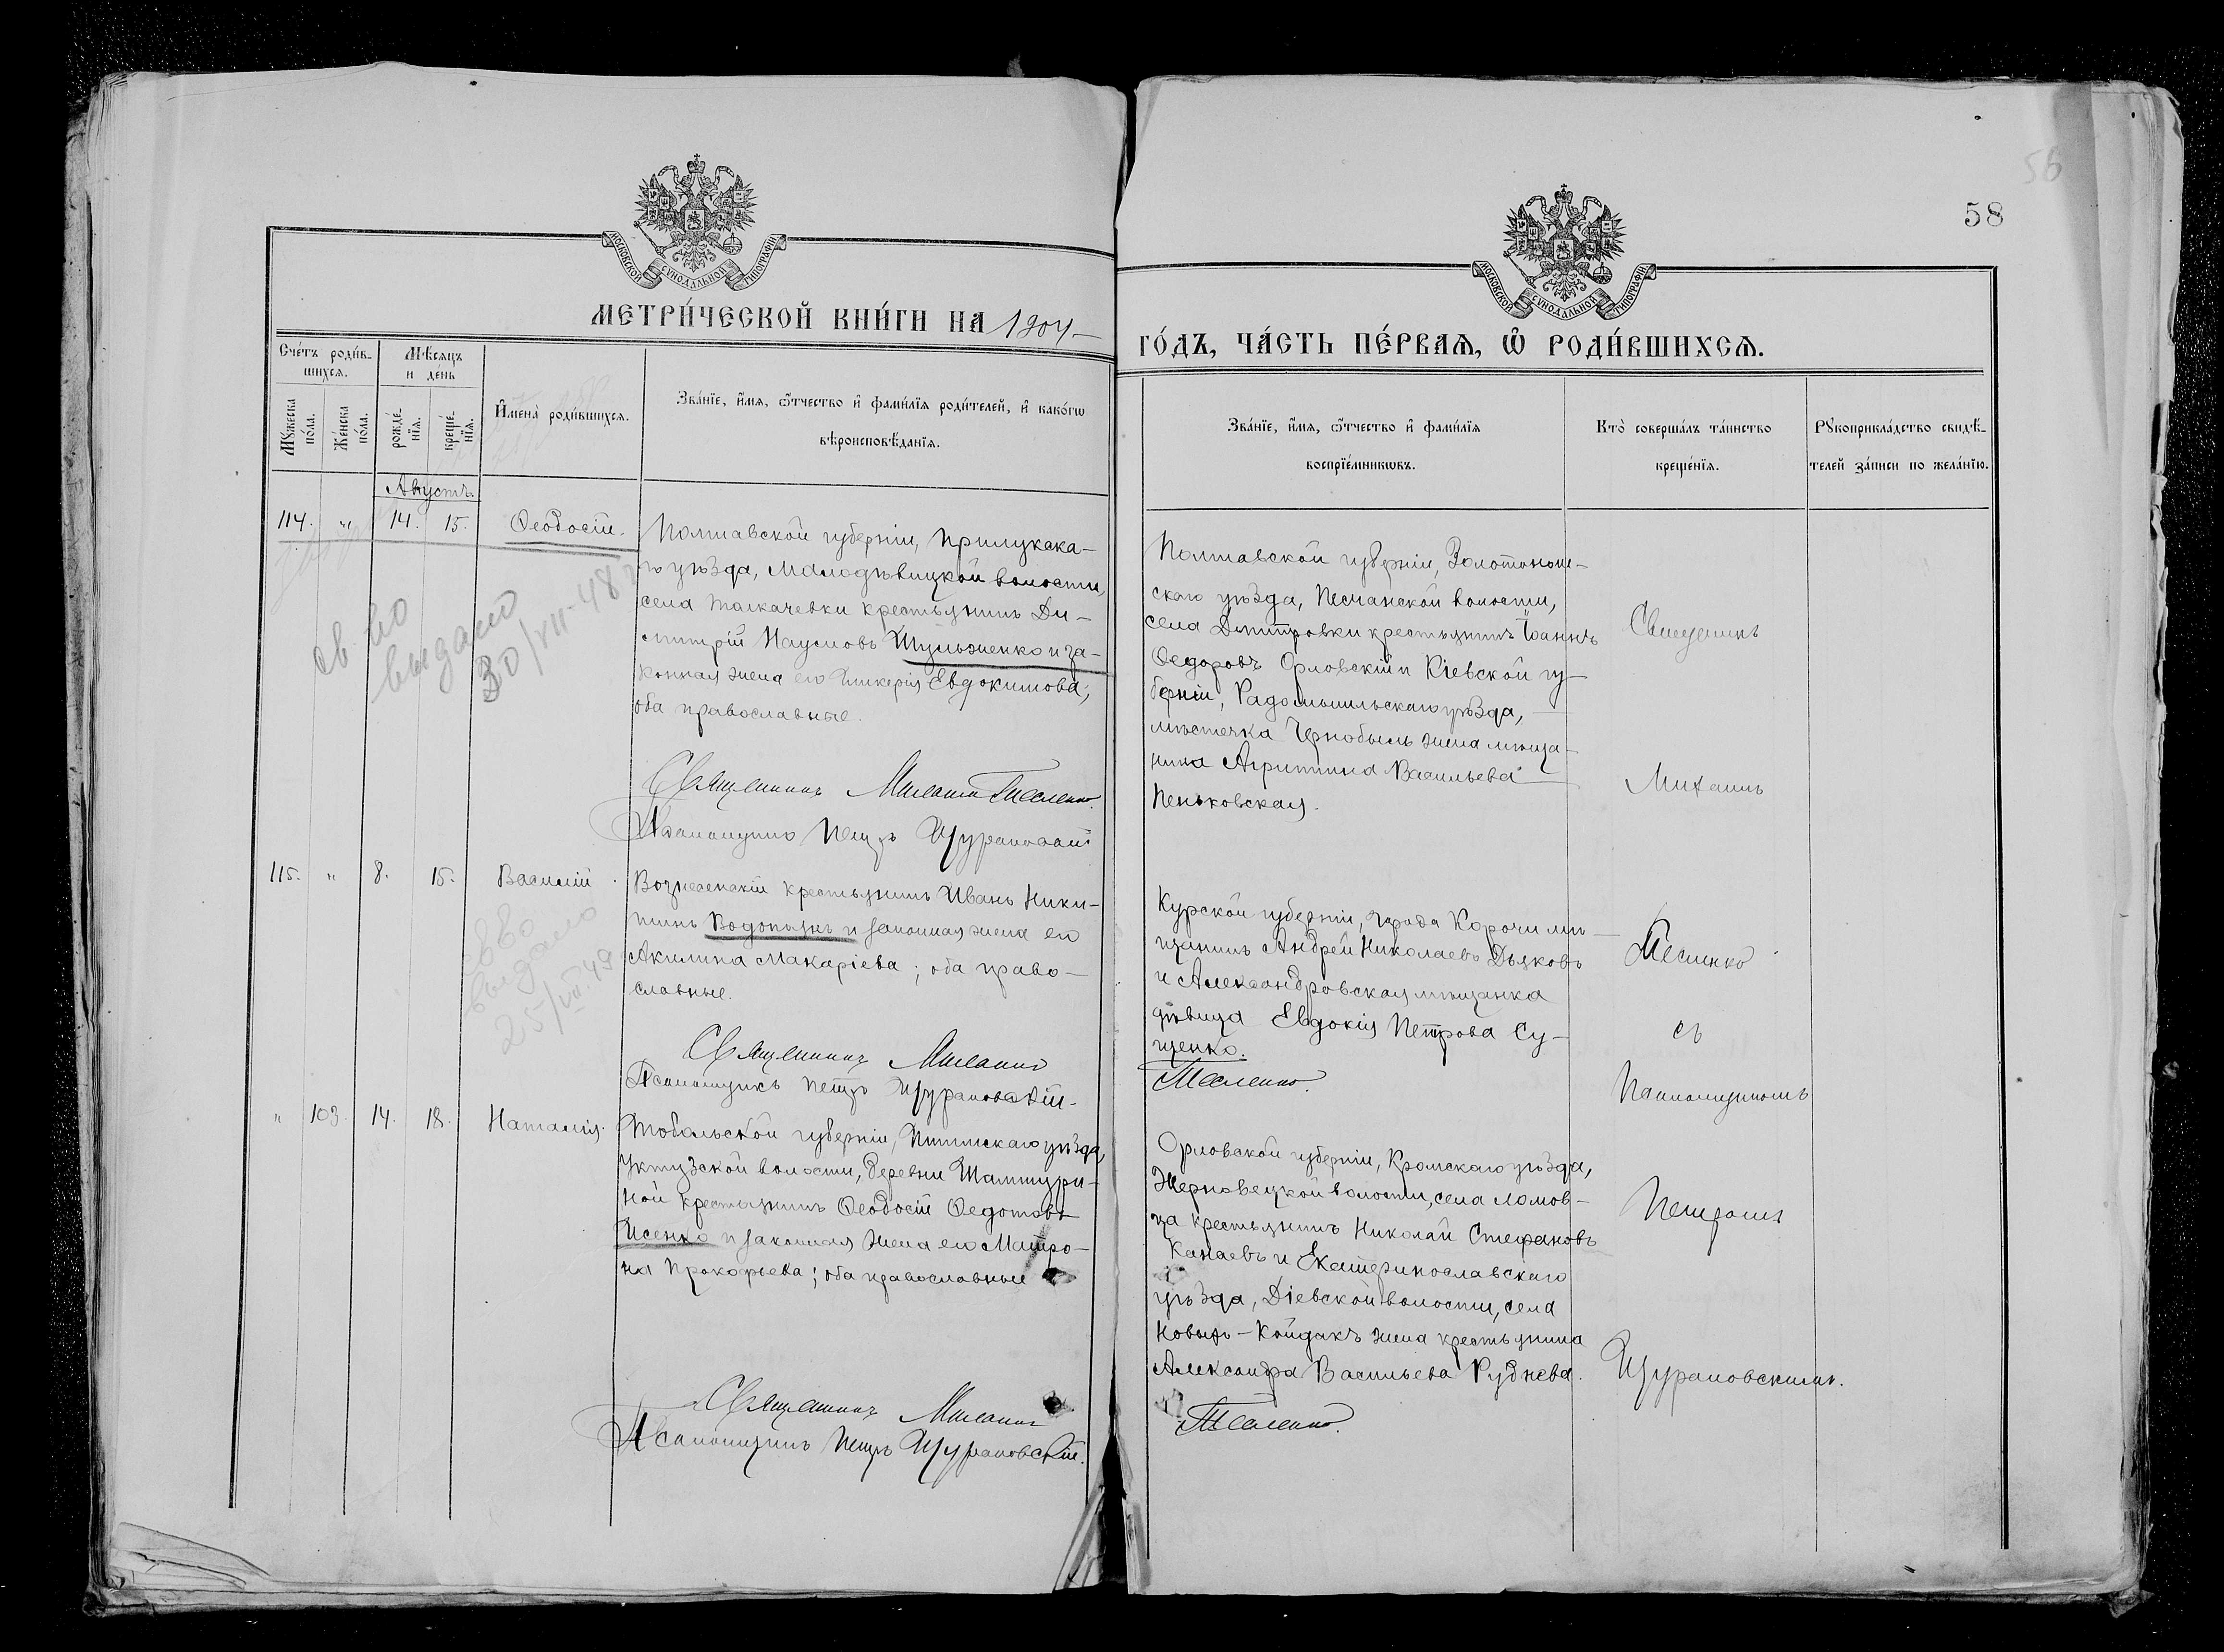 56
58
МОСКОВСКОЙ СѴНОДАЛЬНОЙ ТИПОГРАФІИ
МОСКОВСКОЙ СѴНОДАЛЬНОЙ ТИПОГРАФІИ
МЕТРИ́ЧЕСКОЙ КНИ́ГИ НА 1904
ГО́ДЪ, ЧА́СТЬ ПЕ́РВАѦ, Ѡ҆ РОДИ́ВШИХСѦ.
Сче́тъ роди́в-
шихсѧ.
Мꙋ́жеска по́ла.
Же́нска по́ла.
Мѣ́сѧцъ
и де́нь
рожде́-
нїѧ.
креще́-
нїѧ.
И҆мена̀ роди́вшихсѧ.
Зва́нїе, и҆́мѧ, ѻ҆́тчество и҆ фами́лїѧ роди́телей, и҆ како́гѡ
вѣроисповѣ́данїѧ.
Зва́нїе, и҆́мѧ, ѻ҆́тчество и҆ фами́лїѧ
воспрїе́мникѡвъ.
Кто̀ соверша́лъ та́инство
креще́нїѧ.
Рꙋкоприкла́дство свидѣ́-
телей за́писи по жела́нїю.
Августъ.
114. " 14. 15. Ѳеодосій.
Полтавской губерніи, Прилукска-
го уѣзда, Малодѣвицкой волости,
села Толкачевки крестьянинъ Ди-
митрій Наумовъ Шульженко и за-
конная жена его Гликерія Евдокимова;
оба православные.
Священникъ Михаилъ Тесленко.
Псаломщикъ Петръ Щурановскій
св-во
выдано
30/VII-48
Полтавской губерніи, Золотонош-
скаго уѣзда, Песчанской волости,
села Дмитровки крестьянинъ Іоаннъ
Ѳедоровъ Орловскій и Кіевской гу-
берніи, Радомысльскаго уѣзда,
мѣстечка Чернобыль жена мѣща-
нина Агрипина Васильева
Пеньковская.
Священникъ
Михаилъ
115. " 8. 15. Василій.
Вознесенскій крестьянинъ Иванъ Ники-
тинъ Водопьянъ и законная жена его
Акилина Макаріева; оба право-
славные.
Священникъ Михаилъ
Псаломщикъ Петръ Щурановскій.
св-во
выдано
25/VII-49
Курской губерніи, города Корочи мѣ-
щанинъ Андрей Николаевъ Дьяковъ
и Александровская мѣщанка
дѣвица Евдокія Петрова Су-
щенко.
Тесленко.
Тесленко
съ
Псаломщикомъ
" 103. 14. 18. Наталія.
Тобольской губерніи, Ишимскаго уѣзда,
Уктузской волости, деревни Шаттури-
ной крестьянинъ Ѳеодосій Ѳедотовъ
Исенко и законная жена его Матро-
на Прокофьева; оба православные
Священникъ Михаилъ
Псаломщикъ Петръ Щурановскій.
Орловской губерніи, Кромскаго уѣзда,
Жерновецкой волости, села Ломов-
ца крестьянинъ Николай Стефановъ
Канаевъ и Екатеринославскаго
уѣзда, Діевской волости, села
Новыхъ-Койдакъ жена крестьянина
Александра Васильева Руднева.
Тесленко.
Петромъ
Щурановскимъ.